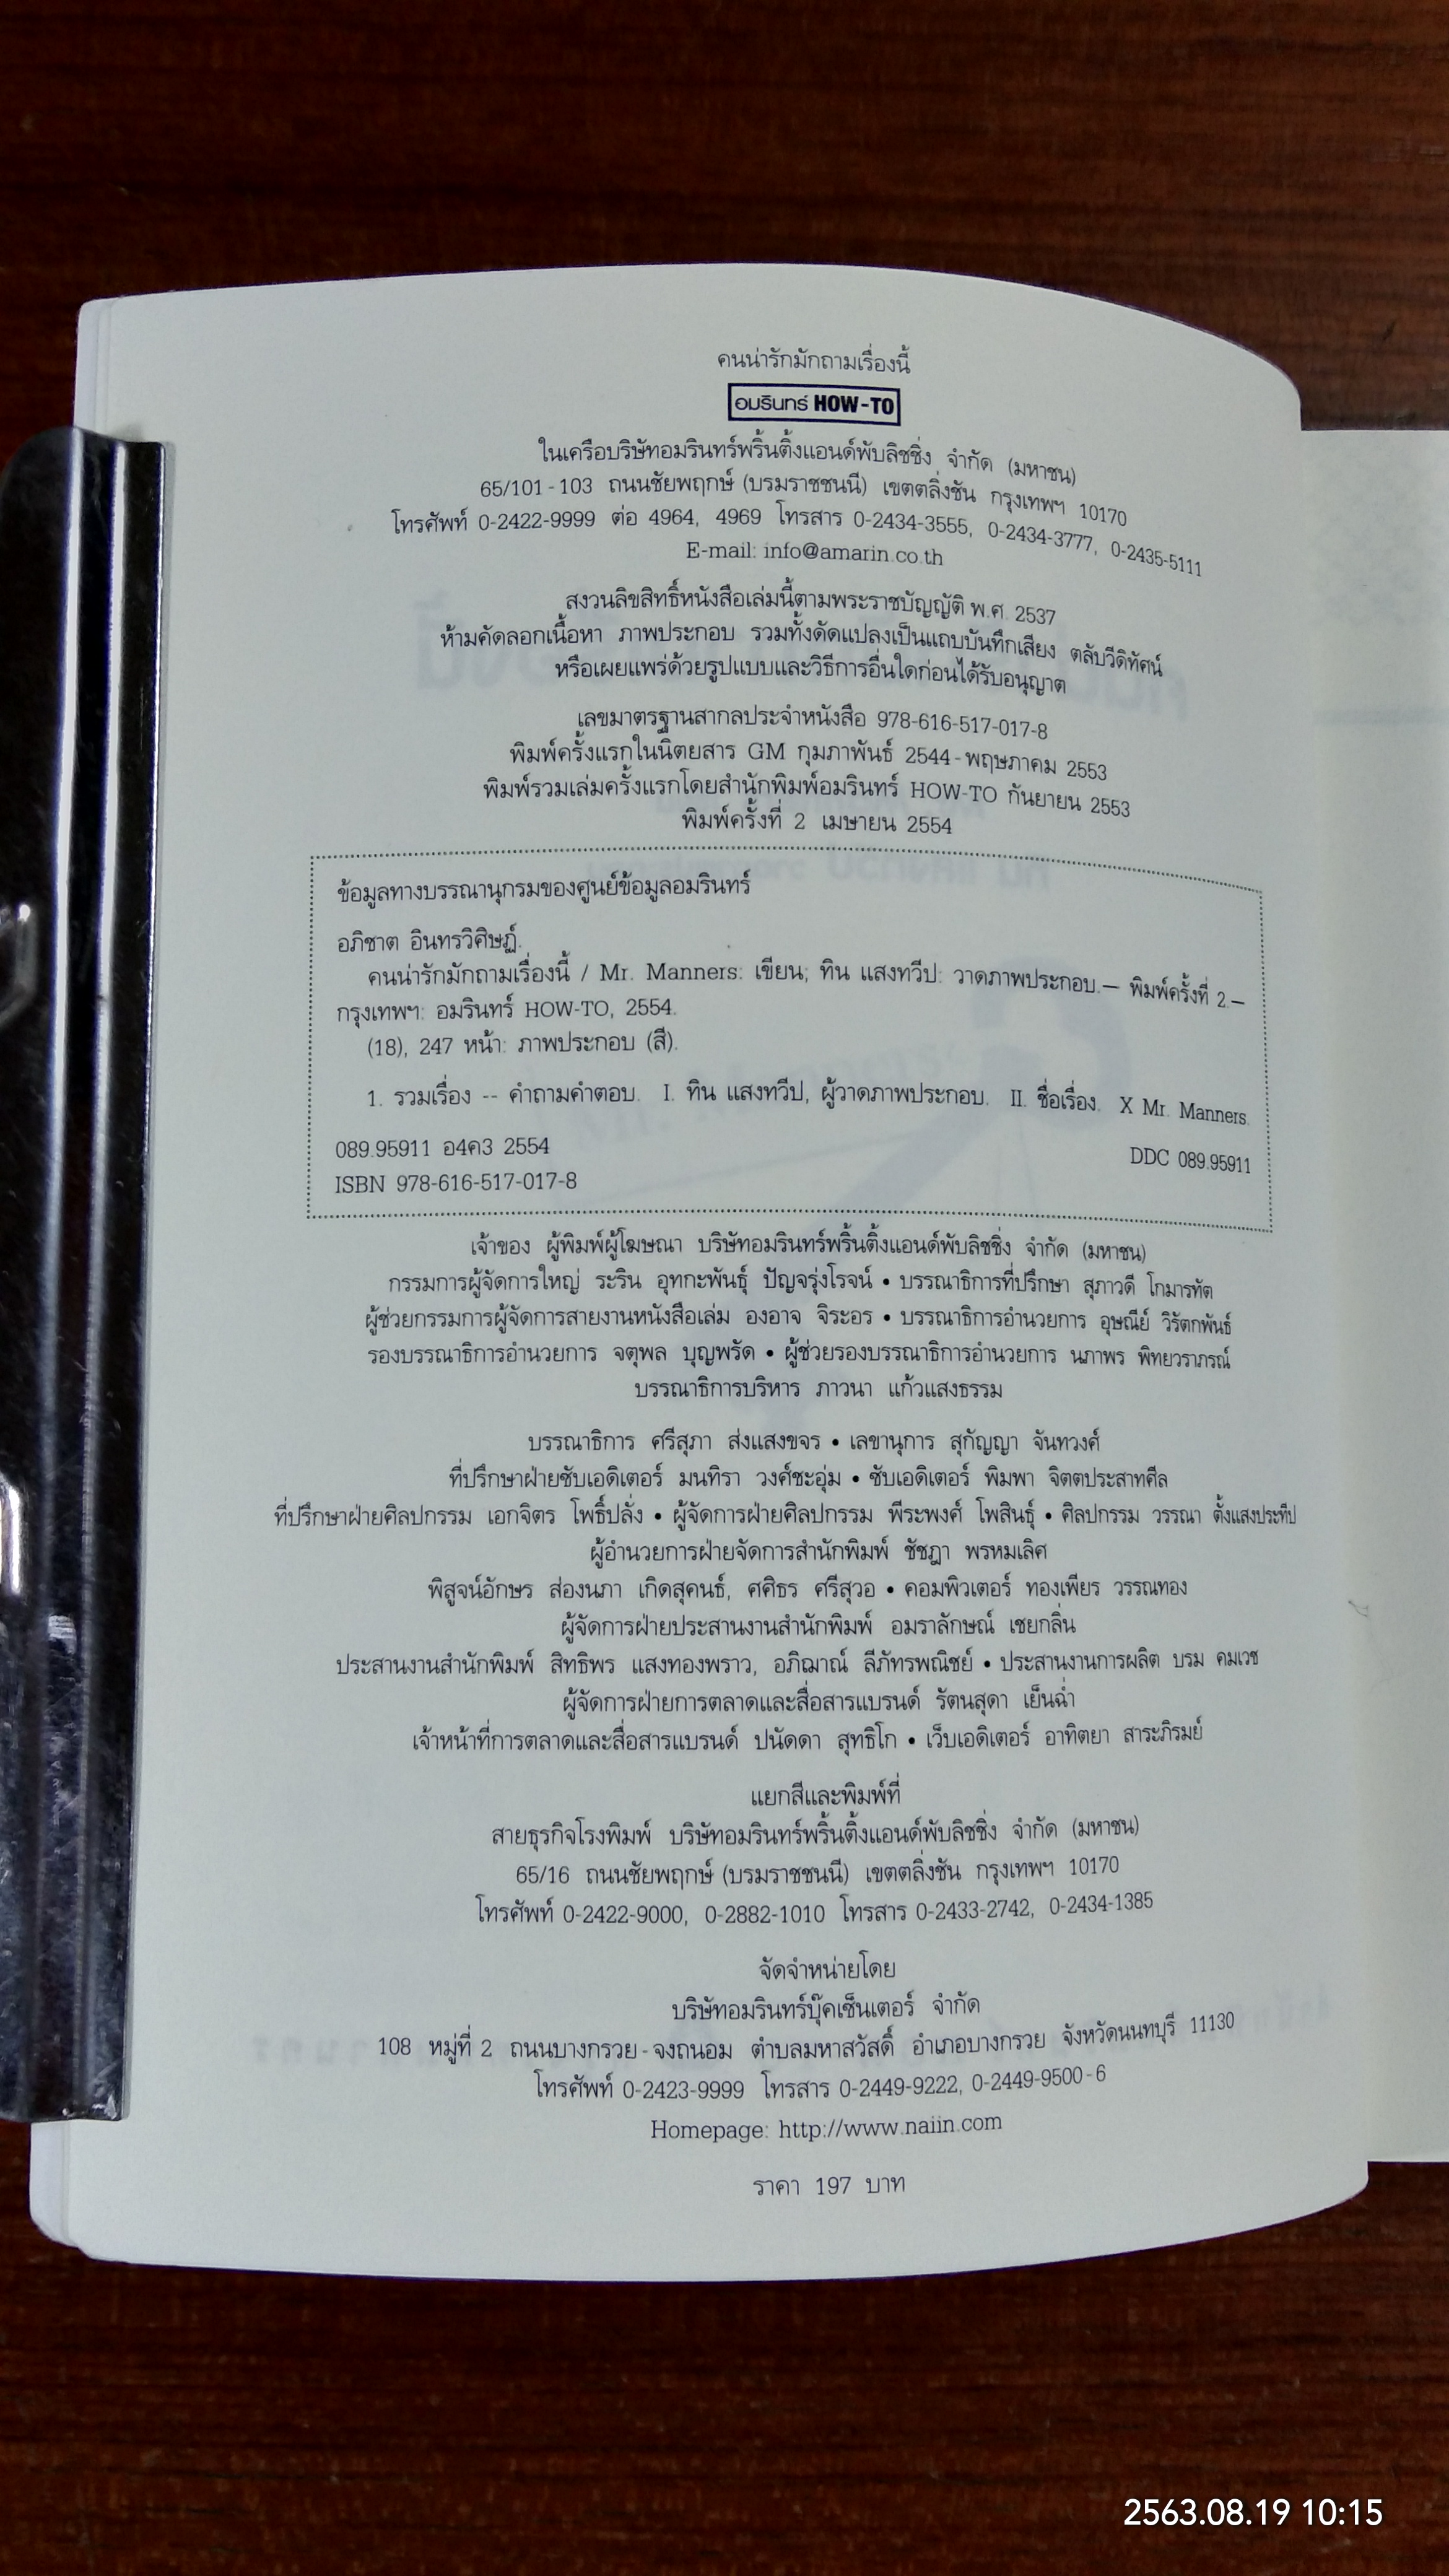 คนน่ารักมักถามเรื่องนี้
อมรินทร์ HOW-TO
ในเครือบริษัทอมรินทร์พริ้นติ้งแอนด์พับลิชชิ่ง จำกัด (มหาชน)
65/101-103 ถนนชัยพฤกษ์ (บรมราชชนนี) เขตตลิ่งชัน กรุงเทพฯ 10170
โทรศัพท์ 0-2422-9999 ต่อ 4964, 4969 โทรสาร 0-2434-3555, 0-2434-3777, 0-2435-5111
E-mail: info@amarin.co.th
สงวนลิขสิทธิ์หนังสือเล่มนี้ตามพระราชบัญญัติ พ.ศ. 2537
ห้ามคัดลอกเนื้อหา ภาพประกอบ รวมทั้งดัดแปลงเป็นแถบบันทึกเสียง ตลับวีดิทัศน์
หรือเผยแพร่ด้วยรูปแบบและวิธีการอื่นใดก่อนได้รับอนุญาต
เลขมาตรฐานสากลประจำหนังสือ 978-616-517-017-8
พิมพ์ครั้งแรกในนิตยสาร GM กุมภาพันธ์ 2544-พฤษภาคม 2553
พิมพ์รวมเล่มครั้งแรกโดยสำนักพิมพ์อมรินทร์ HOW-TO กันยายน 2553
พิมพ์ครั้งที่ 2 เมษายน 2554
ข้อมูลทางบรรณานุกรมของศูนย์ข้อมูลอมรินทร์
อภิชาต อินทรวิศิษฏ์.
คนน่ารักมักถามเรื่องนี้ / Mr. Manners: เขียน; ทิน แสงทวีป: วาดภาพประกอบ.— พิมพ์ครั้งที่ 2.—
กรุงเทพฯ: อมรินทร์ HOW-TO, 2554.
(18), 247 หน้า: ภาพประกอบ (สี).
1. รวมเรื่อง -- คำถามคำตอบ. I. ทิน แสงทวีป, ผู้วาดภาพประกอบ. II. ชื่อเรื่อง. X Mr. Manners.
089.95911 อ4ค3 2554 DDC 089.95911
ISBN 978-616-517-017-8
เจ้าของ ผู้พิมพ์ผู้โฆษณา บริษัทอมรินทร์พริ้นติ้งแอนด์พับลิชชิ่ง จำกัด (มหาชน)
กรรมการผู้จัดการใหญ่ ระริน อุทกะพันธุ์ ปัญจรุ่งโรจน์ • บรรณาธิการที่ปรึกษา สุภาวดี โกมารทัต
ผู้ช่วยกรรมการผู้จัดการสายงานหนังสือเล่ม องอาจ จิระอร • บรรณาธิการอำนวยการ อุษณีย์ วิรัตกพันธ์
รองบรรณาธิการอำนวยการ จตุพล บุญพรัด • ผู้ช่วยรองบรรณาธิการอำนวยการ นภาพร พิทยวราภรณ์
บรรณาธิการบริหาร ภาวนา แก้วแสงธรรม
บรรณาธิการ ศรีสุภา ส่งแสงขจร • เลขานุการ สุกัญญา จันทวงศ์
ที่ปรึกษาฝ่ายซับเอดิเตอร์ มนทิรา วงศ์ชะอุ่ม • ซับเอดิเตอร์ พิมพา จิตตประสาทศีล
ที่ปรึกษาฝ่ายศิลปกรรม เอกจิตร โพธิ์ปลั่ง • ผู้จัดการฝ่ายศิลปกรรม พีระพงศ์ โพสินธุ์ • ศิลปกรรม วรรณา ตั้งแสงประทีป
ผู้อำนวยการฝ่ายจัดการสำนักพิมพ์ ชัชฎา พรหมเลิศ
พิสูจน์อักษร ส่องนภา เกิดสุคนธ์, ศศิธร ศรีสุวอ • คอมพิวเตอร์ ทองเพียร วรรณทอง
ผู้จัดการฝ่ายประสานงานสำนักพิมพ์ อมราลักษณ์ เชยกลิ่น
ประสานงานสำนักพิมพ์ สิทธิพร แสงทองพราว, อภิฌาณ์ ลีภัทรพณิชย์ • ประสานงานการผลิต บรม คมเวช
ผู้จัดการฝ่ายการตลาดและสื่อสารแบรนด์ รัตนสุดา เย็นฉ่ำ
เจ้าหน้าที่การตลาดและสื่อสารแบรนด์ ปนัดดา สุทธิโก • เว็บเอดิเตอร์ อาทิตยา สาระภิรมย์
แยกสีและพิมพ์ที่
สายธุรกิจโรงพิมพ์ บริษัทอมรินทร์พริ้นติ้งแอนด์พับลิชชิ่ง จำกัด (มหาชน)
65/16 ถนนชัยพฤกษ์ (บรมราชชนนี) เขตตลิ่งชัน กรุงเทพฯ 10170
โทรศัพท์ 0-2422-9000, 0-2882-1010 โทรสาร 0-2433-2742, 0-2434-1385
จัดจำหน่ายโดย
บริษัทอมรินทร์บุ๊คเซ็นเตอร์ จำกัด
108 หมู่ที่ 2 ถนนบางกรวย-จงถนอม ตำบลมหาสวัสดิ์ อำเภอบางกรวย จังหวัดนนทบุรี 11130
โทรศัพท์ 0-2423-9999 โทรสาร 0-2449-9222, 0-2449-9500-6
Homepage: http://www.naiin.com
ราคา 197 บาท
2563.08.19 10:15